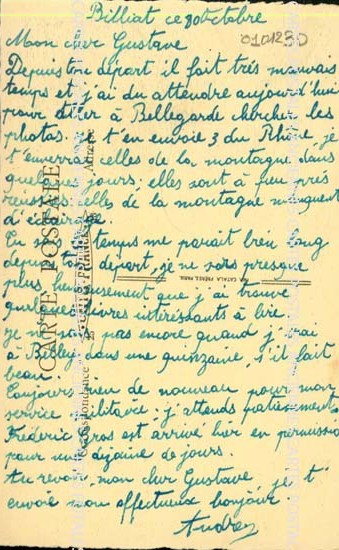 Billiat ce 8 octobre
0101230
Mon cher Gustave
Depuis ton départ il fait très mauvais
temps et j'ai du attendre aujourd'hui
pour aller à Bellegarde chercher les
photos. Je t'en envoie 3 du Rhône, je
t'enverrai celles de la montagne dans
quelques jours; elles sont à peu près
réussies; celles de la montagne manquent
d'éclairage.
Tu sais le temps me parait bien long
depuis ton départ, je ne sors presque
plus heureusement que j'ai trouvé
quelques livres intéressants à lire.
Je ne sais pas encore quand j'irai
à Belley, dans une quinzaine, s'il fait
beau.
Toujours rien de nouveau pour mon
service militaire; j'attends patiemment.
Frédéric Gros est arrivé hier en permission
pour une dizaine de jours.
Au revoir, mon cher Gustave, je t'
envoie mon affectueux bonjour.
CARTE POSTALE
Correspondance
Adresse
CATALA FRÈRES, PARIS